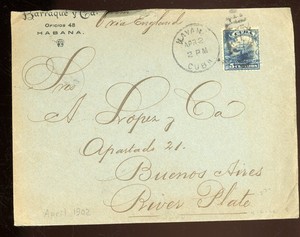 Barraque y Cia
Oficios 48
HABANA.
Via England
HAVANA
CUBA
CUBA
Sres
A. Lopez y Ca
Apartado 21.
Buenos Aires
River Plate
April 1902